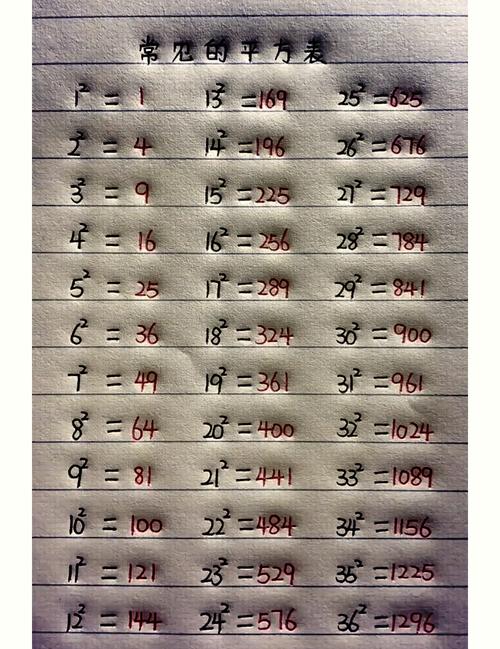 常见的平方表
1² = 1 13² = 169 25² = 625
2² = 4 14² = 196 26² = 676
3² = 9 15² = 225 27² = 729
4² = 16 16² = 256 28² = 784
5² = 25 17² = 289 29² = 841
6² = 36 18² = 324 30² = 900
7² = 49 19² = 361 31² = 961
8² = 64 20² = 400 32² = 1024
9² = 81 21² = 441 33² = 1089
10² = 100 22² = 484 34² = 1156
11² = 121 23² = 529 35² = 1225
12² = 144 24² = 576 36² = 1296